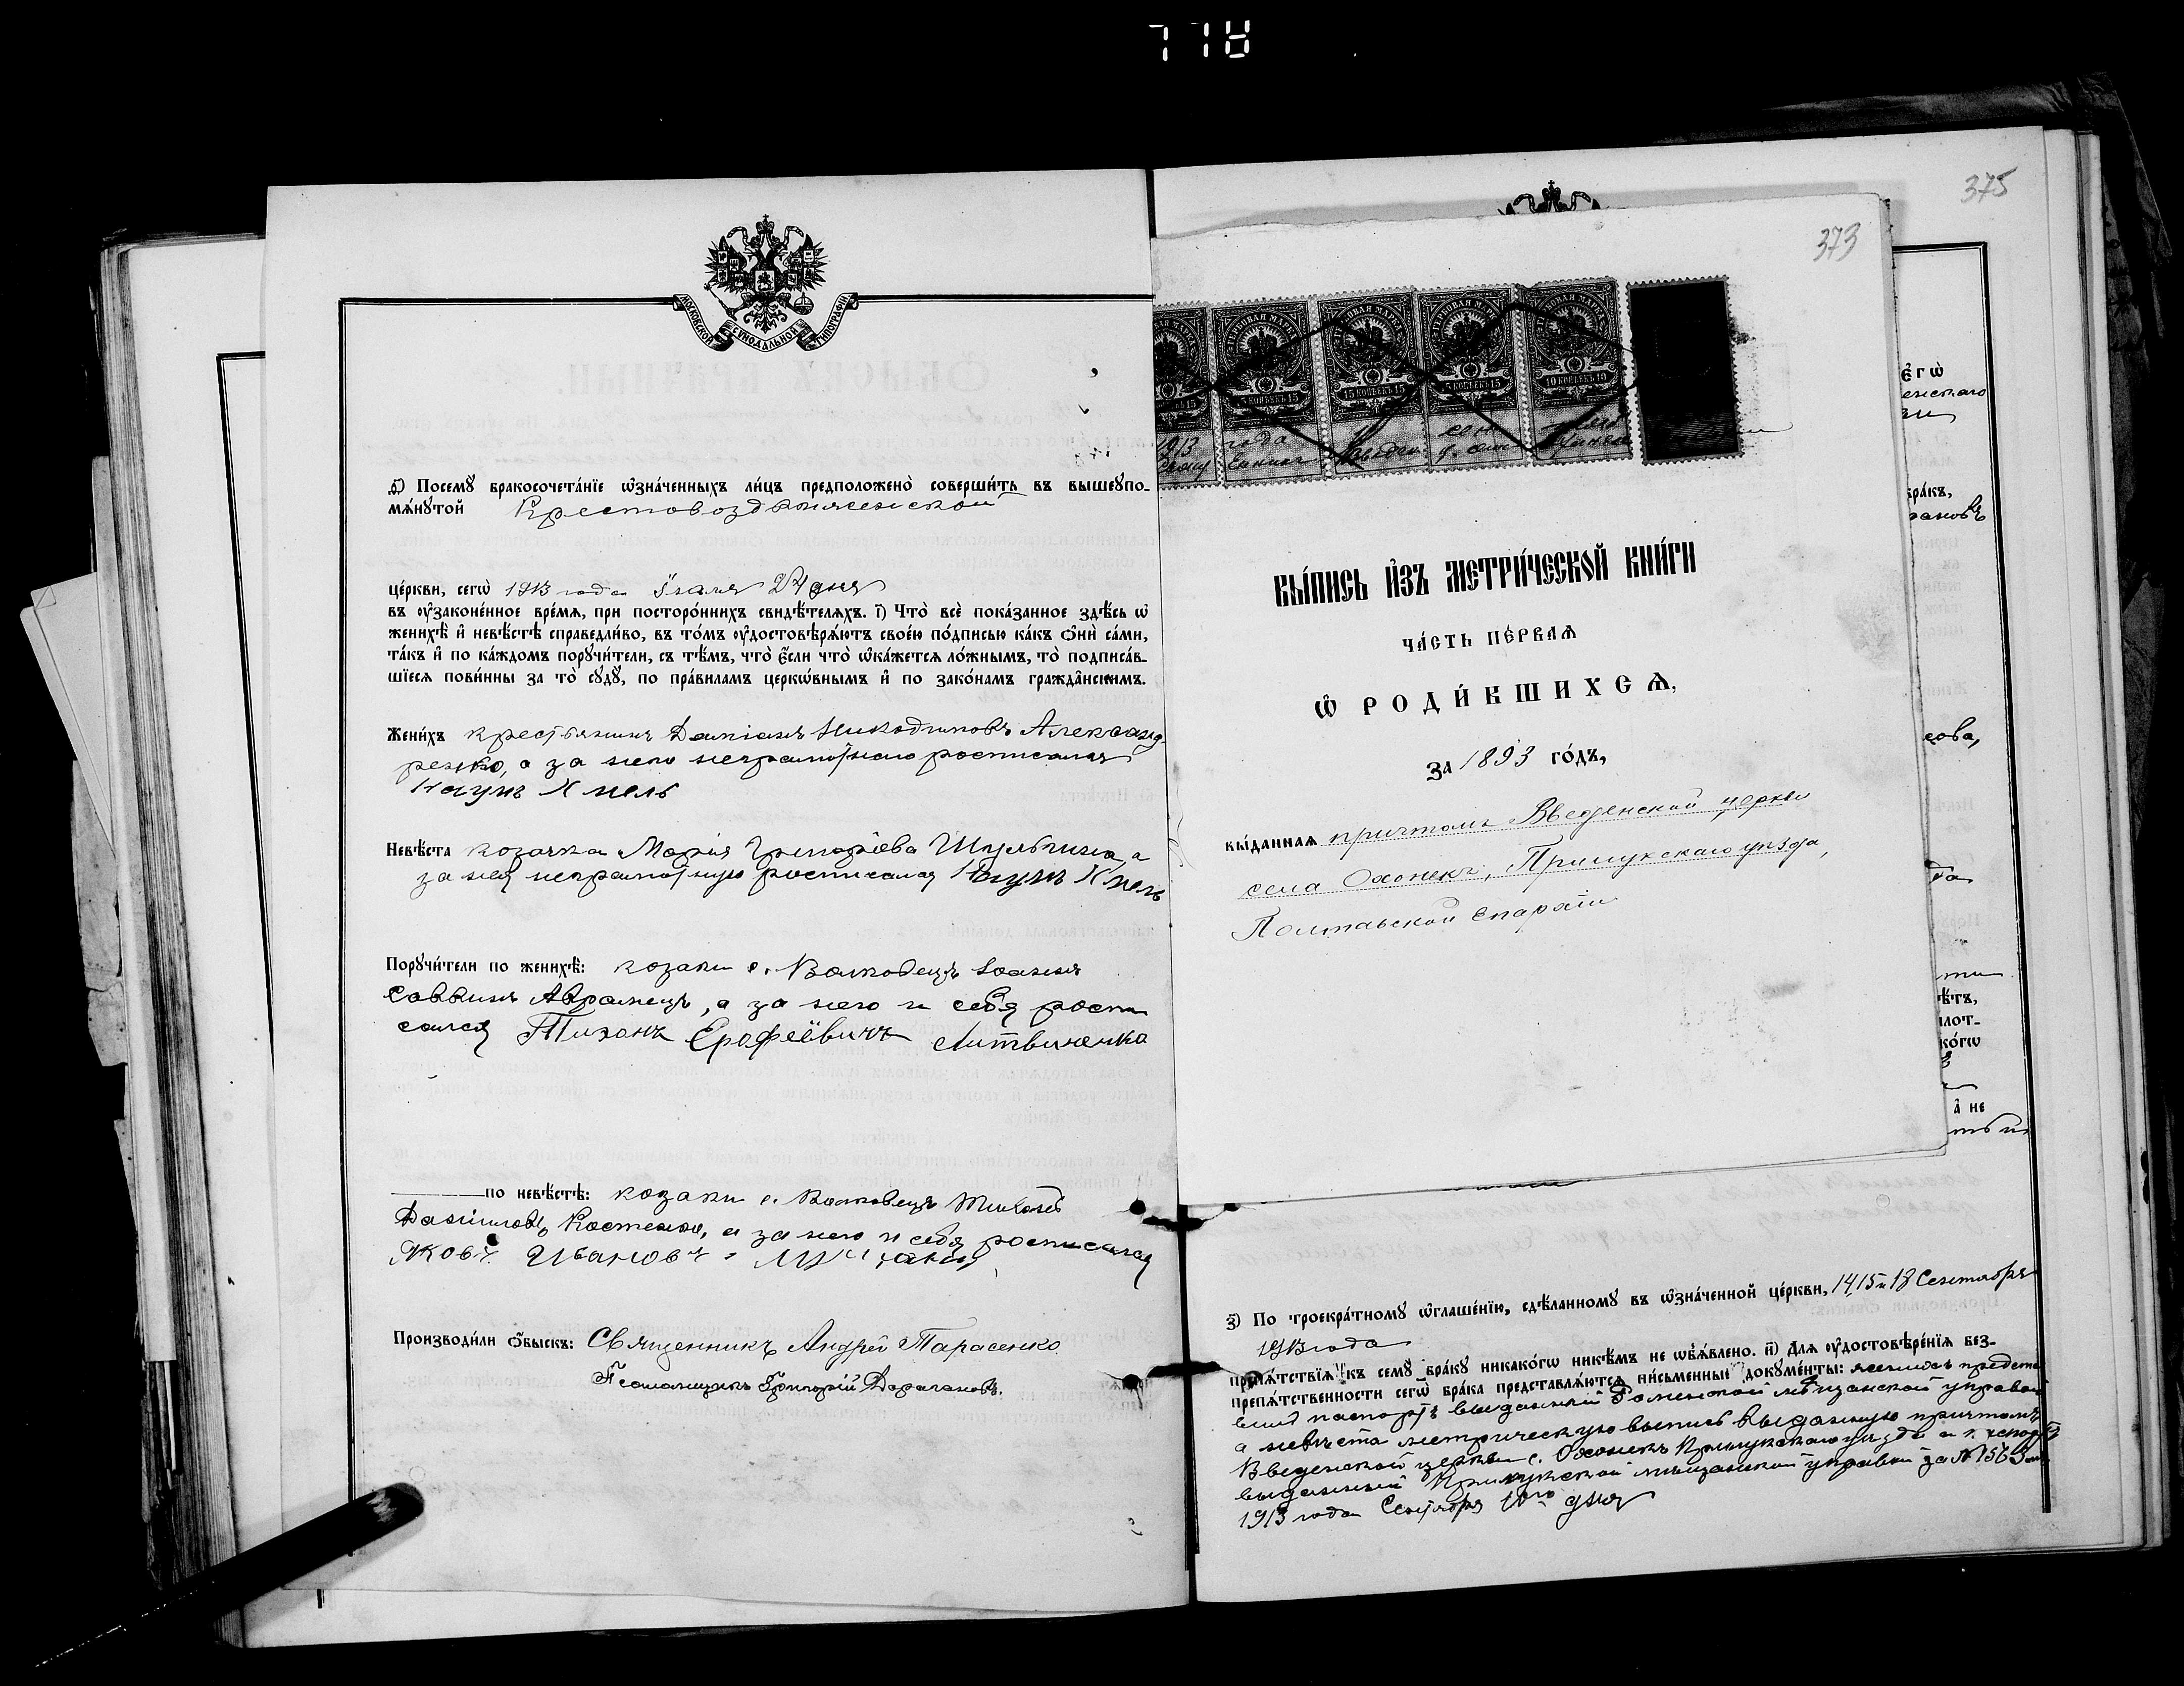 778
МОСКОВСКОЙ СѴНОДАЛЬНОЙ ТИПОГРАФІИ
Посемꙋ̀ бракосочета́нїе ѡ҆зна́ченныхъ ли́цъ предположено̀ соверши́ть въ вышеꙋпо-
мѧ́нꙋтой Крестовоздвиженской
це́ркви, сегѡ̀ 1913 года Іюля 27 дня
въ ᲂу҆законе́нное вре́мѧ, при посторо́ннихъ свидѣ́телѧхъ. і҃) Что̀ всѐ пока́занное здѣ́сь ѡ҆
женихѣ̀ и҆ невѣ́стѣ справедли́во, въ то́мъ ᲂу҆достовѣрѧ́ютъ свое́ю по́дписью ка́къ ѻ҆нѝ са́ми,
та́къ и҆ по ка́ждомъ порꙋчи́тели, съ тѣ́мъ, что̀ є҆́сли что̀ ѡ҆ка́жетсѧ ло́жнымъ, то̀ подписа́в-
шїесѧ пови́нны за то̀ сꙋдꙋ̀, по пра́виламъ церкѡ́внымъ и҆ по зако́намъ гражда̂нскимъ.
Жени́хъ крестьянинъ Даміанъ Никодимовъ Александ-
ренко, а за него неграмотнаго росписался
Наумъ Хмель
Невѣ́ста козачка Марія Григоріева Шульгина, а
за нея неграмотную росписался Наумъ Хмель
Порꙋчи́тели по женихѣ̀: козаки с. Волковецъ Іоаннъ
Саввинъ Аврамецъ, а за него и себя роспи
сался Тихонъ Ерофѣевичъ Литвиненко
по невѣ́стѣ: козаки с. Волковецъ
Костенко, а за него и себя росписался
Яковъ Ивановъ
Производи́ли ѻ҆́быскъ: Священникъ Андрей Тарасенко
Псаломщикъ Григорій Дарагановъ.
375
373
15 КОПѢЕКЪ 15
15 КОПѢЕКЪ 15
15 КОПѢЕКЪ 15
10 КОПѢЕКЪ 10
1913 года
ВЫ́ПИСЬ И҆ЗЪ МЕТРИ́ЧЕСКОЙ КНИ́ГИ
ЧА́СТЬ ПЕ́РВАѦ
Ѡ҆ РОДИ́ВШИХСѦ,
ЗА 1893 ГО́ДЪ,
ВЫ́ДАННАѦ причтомъ Введенской церкви
села Охонекъ, Прилукскаго уѣзда,
Полтавской епархіи
є҆гѡ̀
бра́къ,
сова,
да
ѣтъ,
плот-
ко́гѡ
а҆ не
з҃) По троекра́тномꙋ ѡ҆глаше́нїю, сдѣ́ланномꙋ въ ѡ҆зна́ченной це́ркви, 14, 15 и 18 Сентября
1913 года
препѧ́тствїѧ къ семꙋ̀ бра́кꙋ никако́гѡ никѣ́мъ не ѡ҆б̾ѧ́влено. и҃) Длѧ ᲂу҆достовѣре́нїѧ без-
препѧ́тственности сегѡ̀ бра́ка представлѧ́ютсѧ пи́сьменные докꙋме́нты: женихъ предста
вилъ паспортъ выданный Роменской мѣщанской управой
а невѣста метрическую выпись выданную причтомъ
Введенской церкви с. Охонекъ Прилукскаго уѣзда и
выданный Прилукской мѣщанской управой за №
1913 года Сентября 10го дня